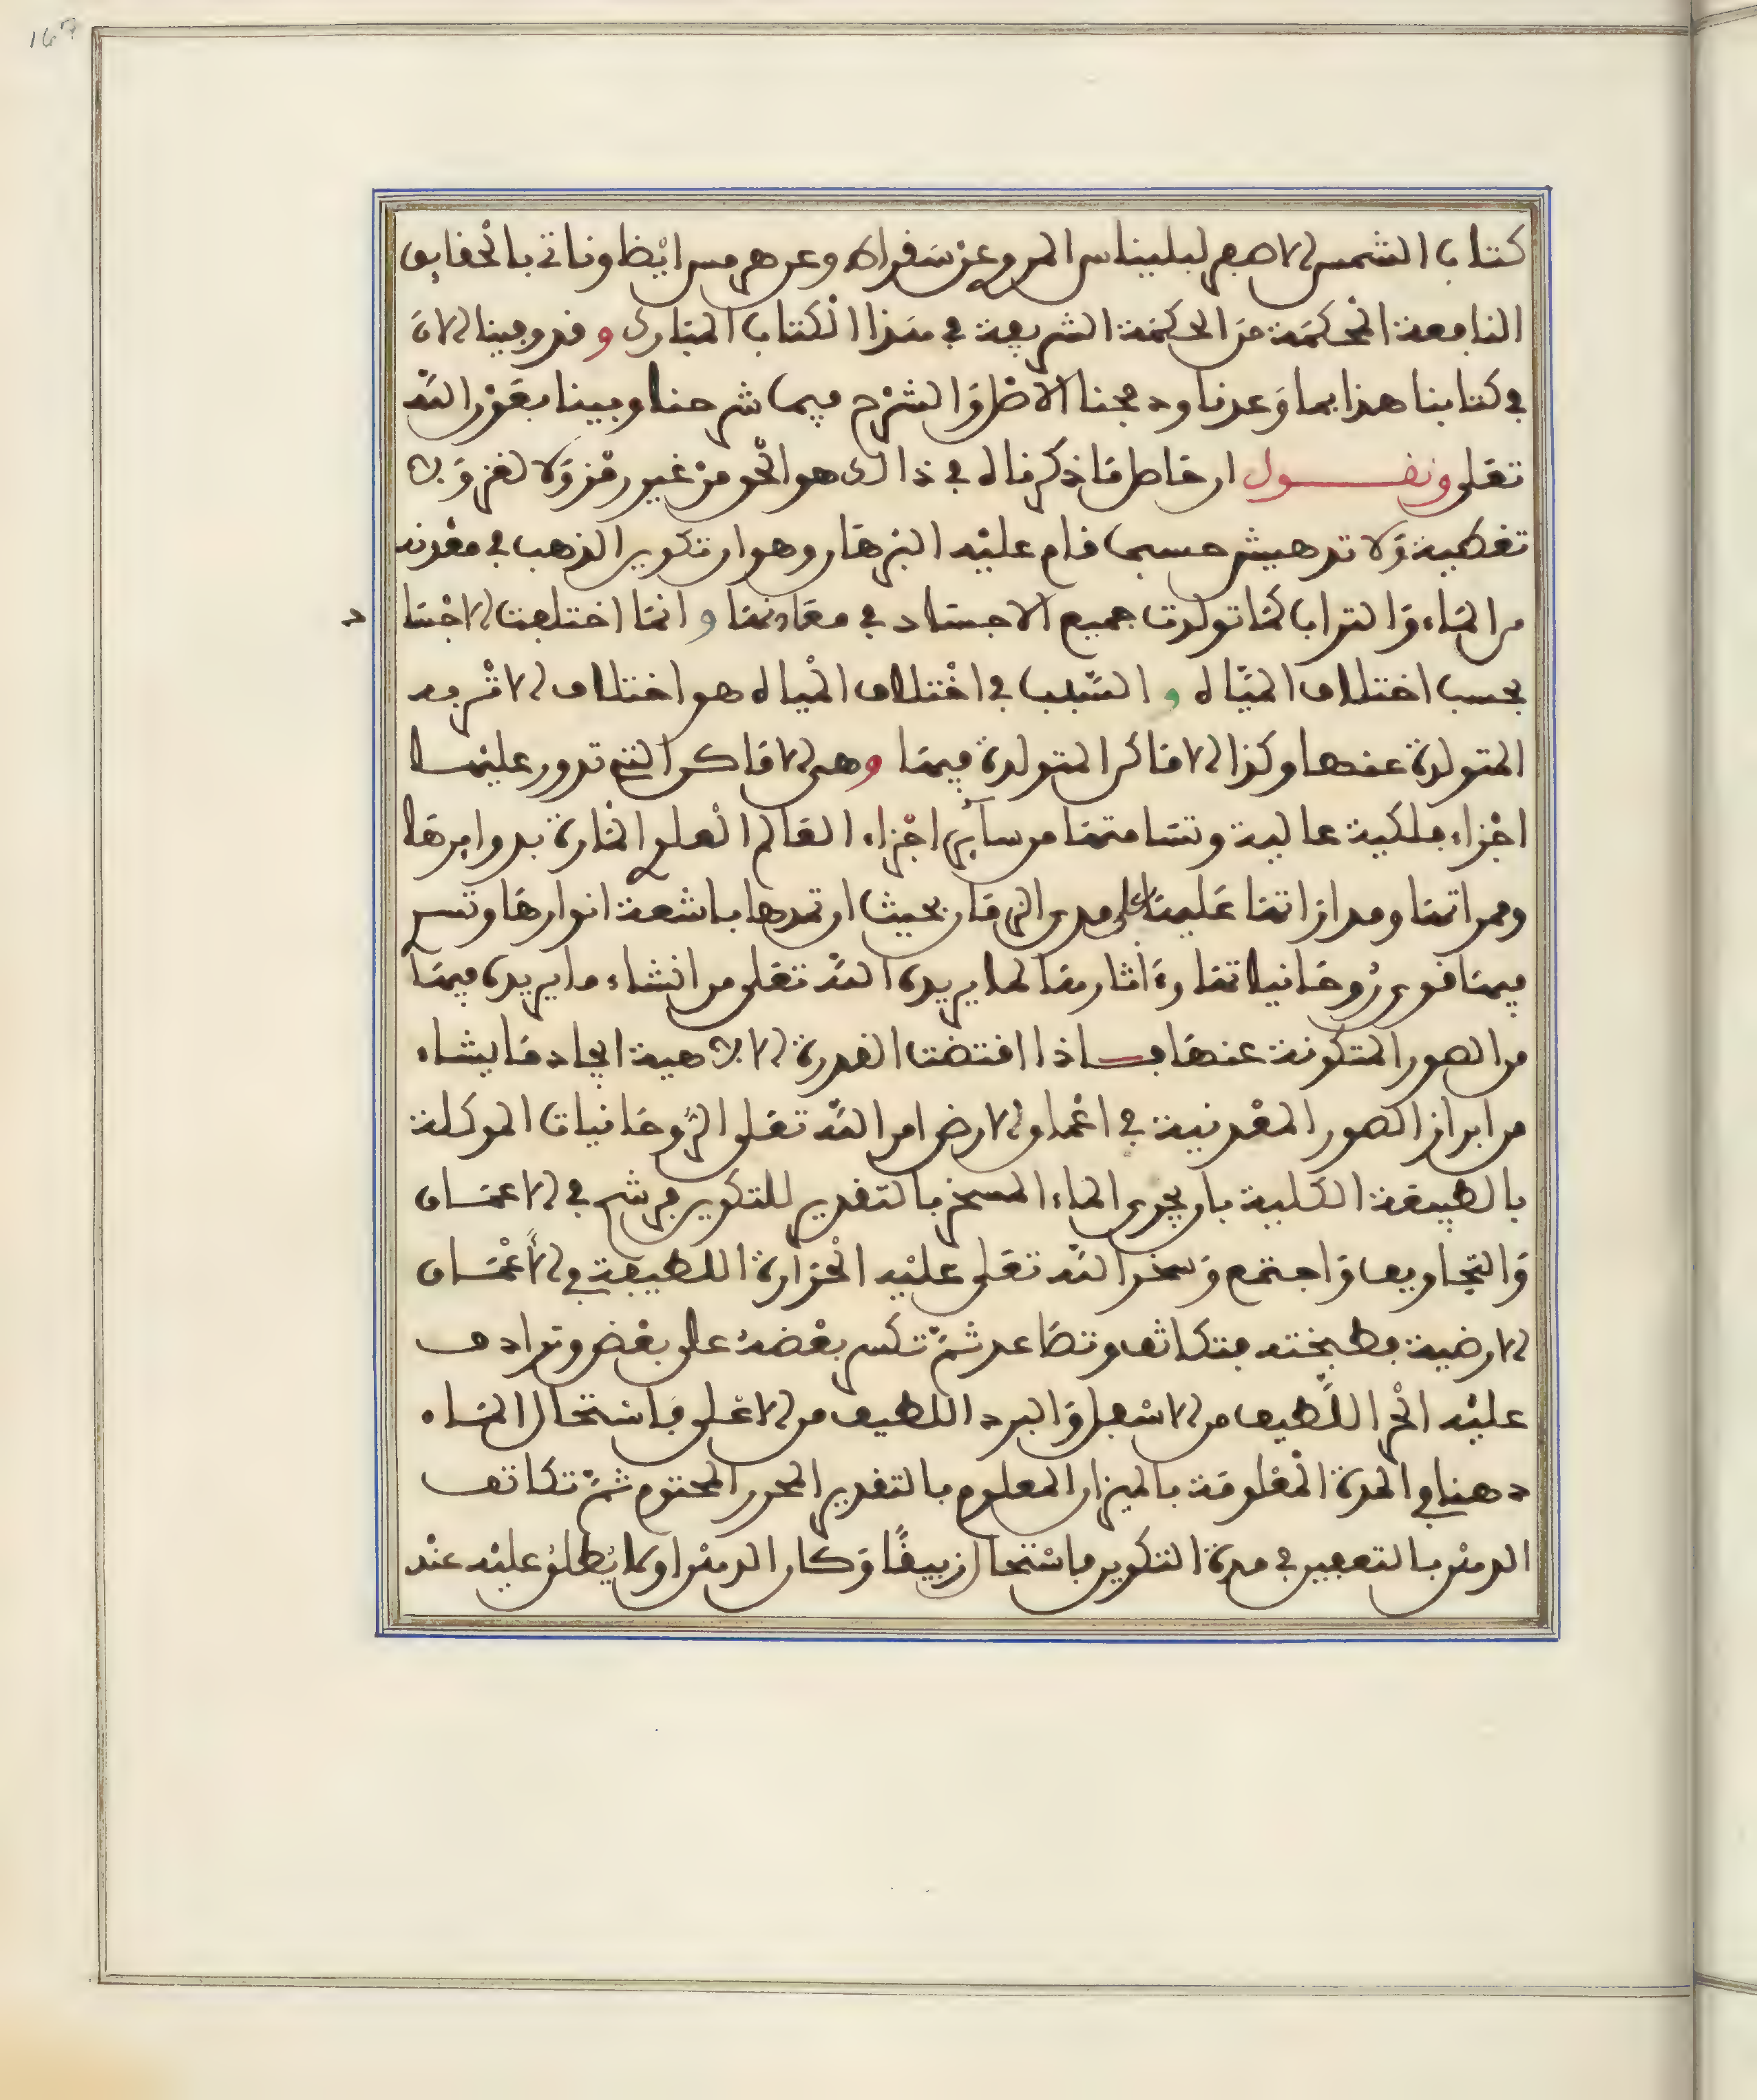 كتاب الشمس الاصغر لبليناس المروي عن سقراط وعن هرمس ايظا وناتي بالحقايق
النافعة المحكمة من الحكمة الشريفة في هذا الكتاب المبارك وقد وفينا الان
في كتابنا هذا بما وعدنا ودمجنا الاصل والشرح فيما شرحنا وبينا بعون الله
تعلى ونقول ان حاصل ما ذكرناه في ذالك هو الحق من غير رمز ولا لغز ولا
تغطية ولا تدهيش حسبما قام عليه البرهان وهو ان تكوين الذهب في معدنه
من الماء والتراب كما تولدت جميع الاجساد في معادنها وانما اختلفت الاجسا
د
بحسب اختلاف المياه والسبب في اختلاف المياه هو اختلاف الاتربه
المتولدة عنها وكذا الاماكن المتولدة فيها وهي الاماكن التي تدور عليها
اجزاء فلكية عالية وتسامتها من سآئر اجزاء العالم العلوي المارة بدوايرها
وممراتها ومداراتها عليها على مدى الزمان بحيث ان تمدها باشعة انوارها وتسري
فيها قوى روحانياتها وة اثارها لما يريده الله تعلى من انشاء ما يريده فيها
من الصور المتكونة عنها فاذا اقتضت القدرة الالاهية ايجاد ما يشاء
من ابراز الصور المعدنية في اعماق الارض امر الله تعلى الروحانيات الموكلة
بالطبيعة الكلية بان يجري الماء المسخن بالتقدير للتكوين فرشح في الاعماق
والتجاويف واجتمع وسخر الله تعلى عليه الحرارة اللطيفة في الاعماق
الارضية فطبخته فتكاثف وتصاعد ثم تكس بعضه على بعض وترادف
عليه الحر اللطيف من الاسفل والبرد اللطيف من الاعلى فاستحال الماء
دهنا في المدة المعلومة بالميزان المعلوم بالتقدير المحرر المحتوم ثم تكاثف
الدهن بالتعفين في مدة التكوين فاستحال زيبقا وكان الدهن اول ما يطلق عليه عند